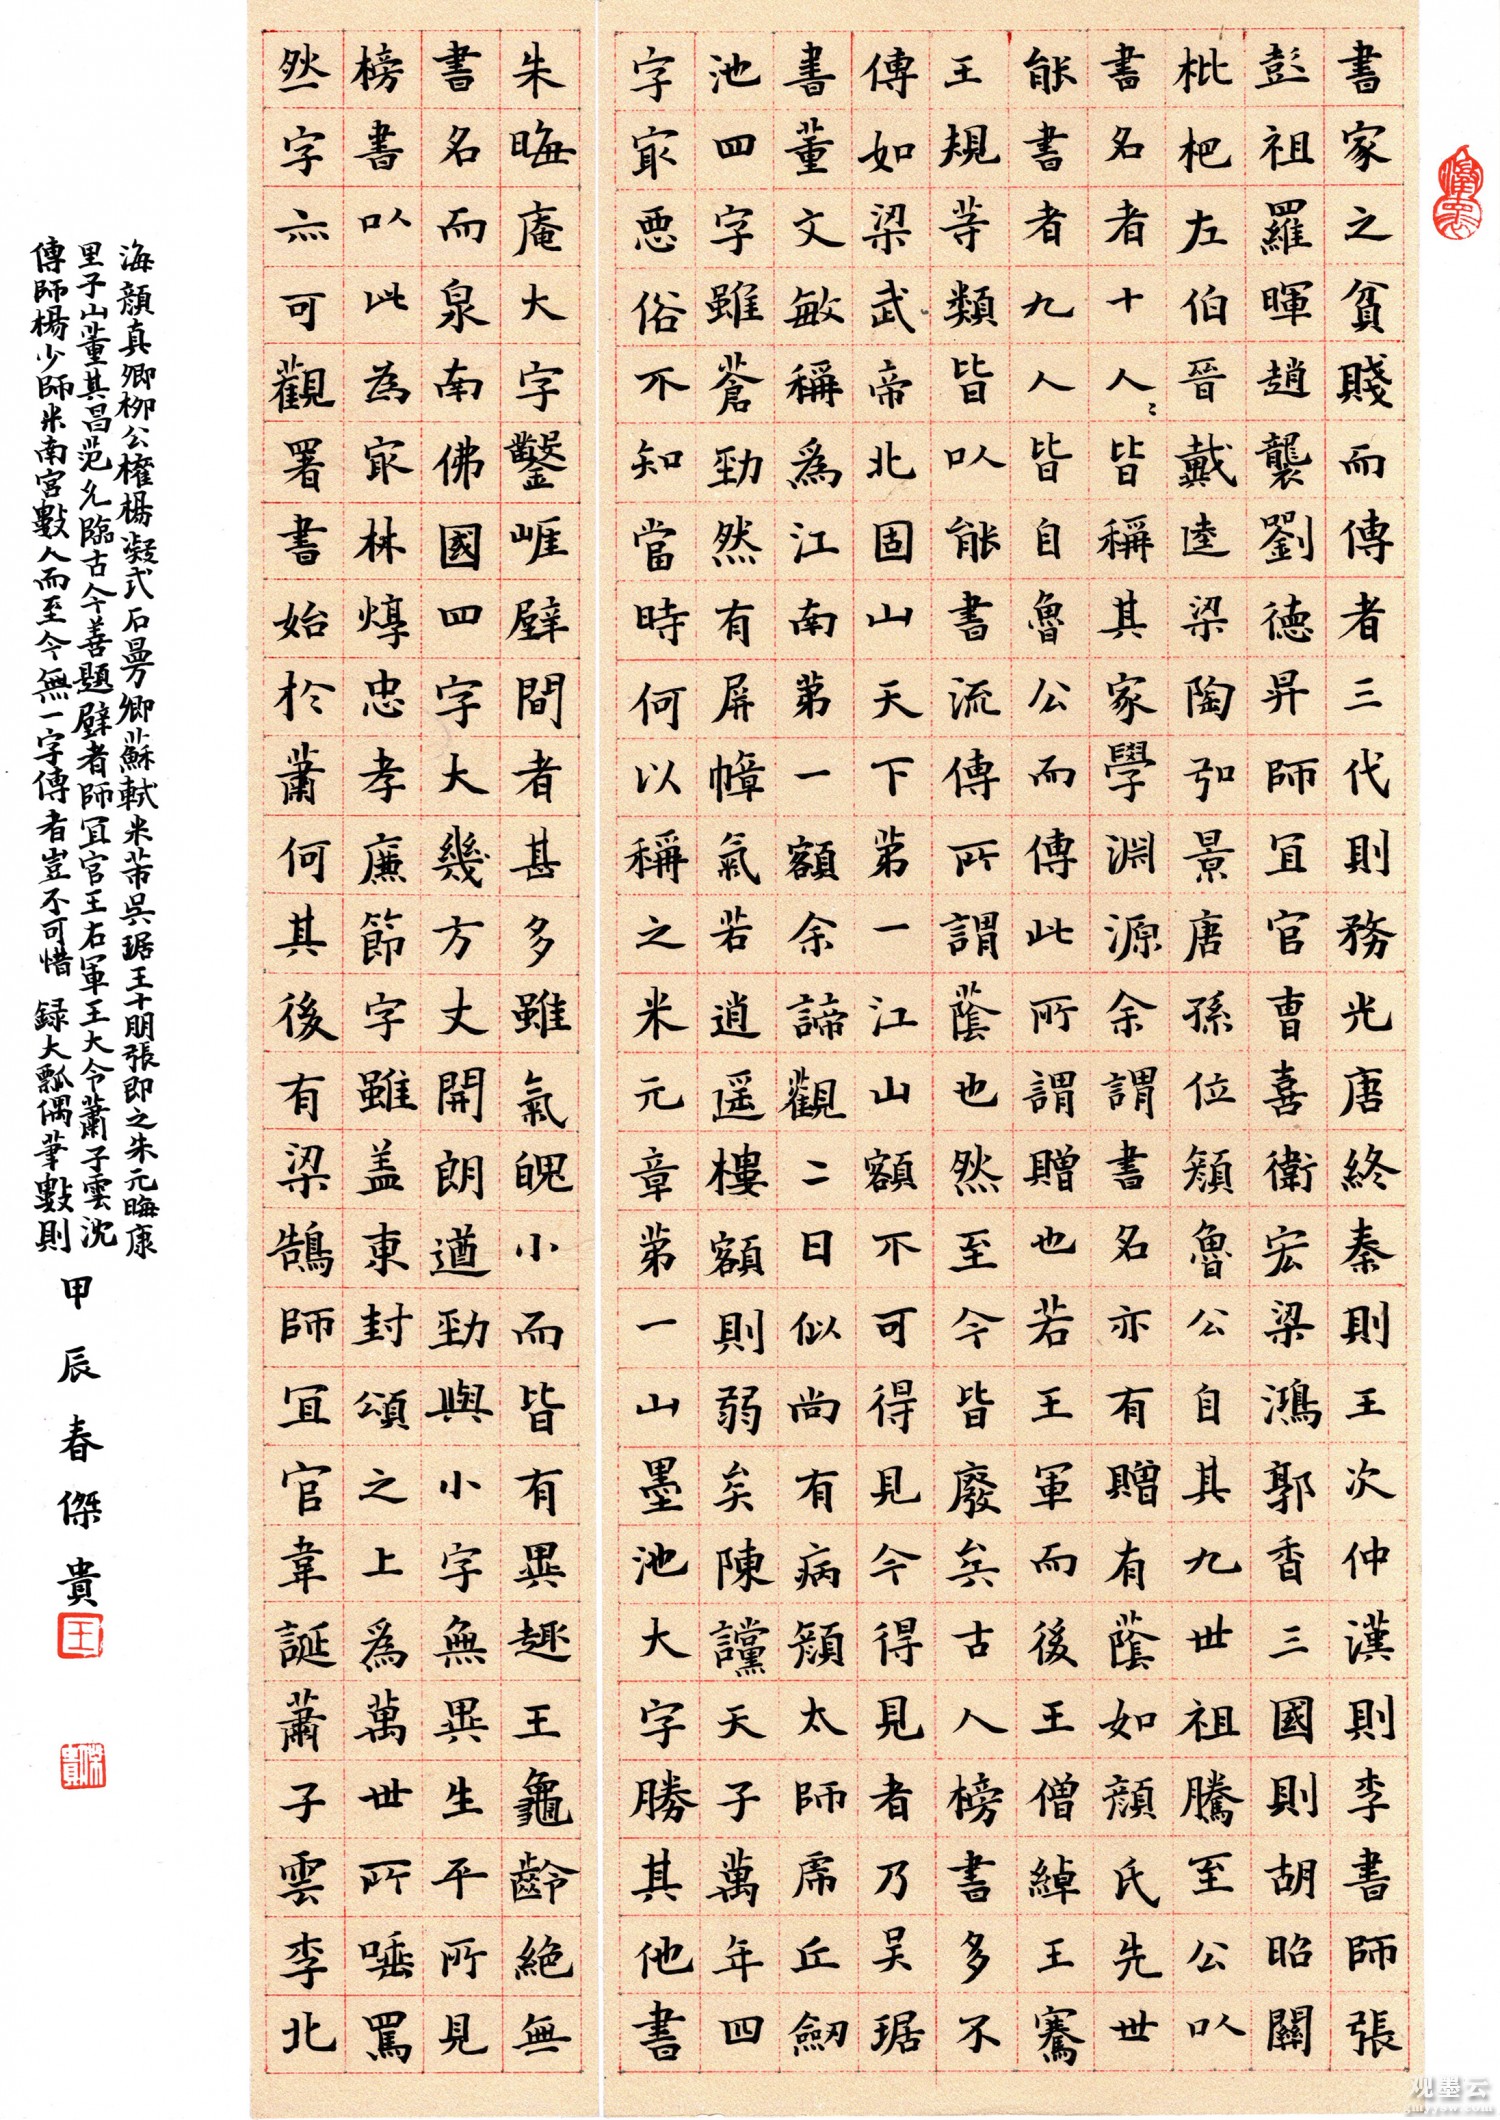 書家之貧賤而傳者三代則務光唐終秦則王次仲漢則李書師張
彭祖羅暉趙襲劉德昇師宜官曹喜衛宏梁鴻郭香三國則胡昭關
枇杷左伯晉戴逵梁陶弘景唐孫位頵魯公自其九世祖騰至公以
書名者十人人皆稱其家學淵源余謂書名亦有贈有蔭如顏氏先世
能書者九人皆自魯公而傳此所謂贈也若王軍而後王僧綽王騫
王規等類皆以能書流傳所謂蔭也然至今皆廢矣古人榜書多不
傳如梁武帝北固山天下第一江山額不可得見今得見者乃吴琚
書董文敏稱為江南第一額余諦觀二日似尚有病頵太師虎丘劒
池四字雖蒼勁然有屏幛氣若逍遥樓額則弱矣陳讜天子萬年四
字㝡惡俗不知當時何以稱之米元章第一山墨池大字勝其他書
朱晦庵大字鑿崕壁間者甚多雖氣魄小而皆有異趣王龜齡絕無
書名而泉南佛國四字大幾方丈開朗遒勁與小字無異生平所見
榜書以此為㝡林焞忠孝廉節字雖盖東封頌之上為萬世所唾罵
然字亦可觀署書始於蕭何其後有梁鵠師宜官韋誕蕭子雲李北
海顏真卿柳公權楊凝式石曼卿蘇軾米芾吳琚王十朋張即之朱元晦康
里子山董其昌范允臨古今善題壁者師宜官王右軍王大令蕭子雲沈
傳師楊少師米南宮數人而至今無一字傳者豈不可惜 録大瓢偶筆數則
甲辰春傑貴
王
傑貴
观墨云